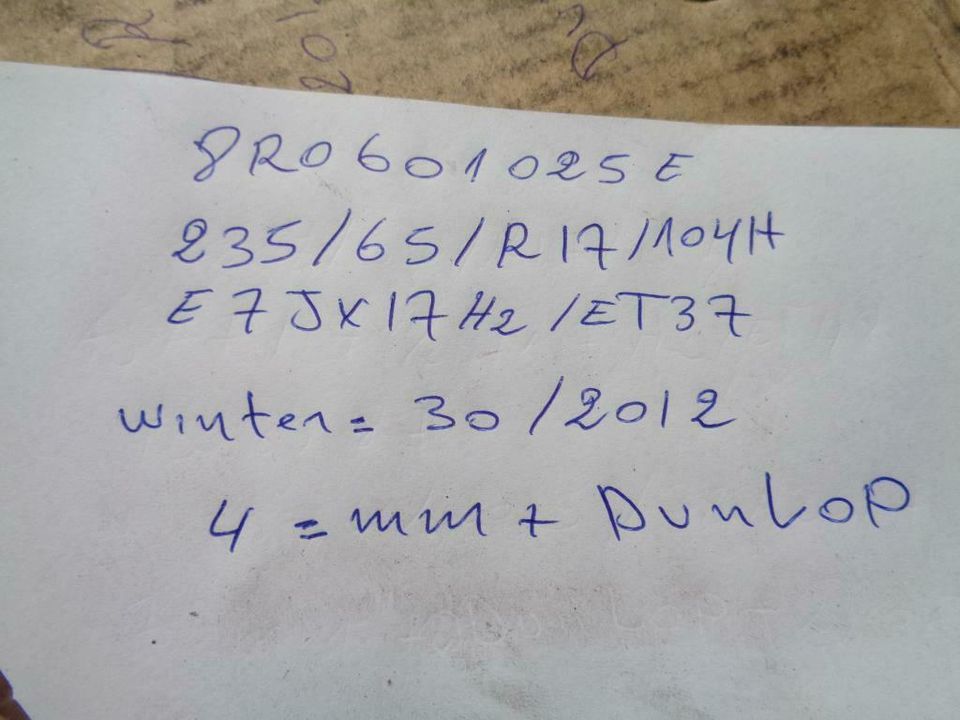 8R0601025E
235/65/R17/104H
E7JX17H2/ET37
winter = 30/2012
4 = mm + Dunlop